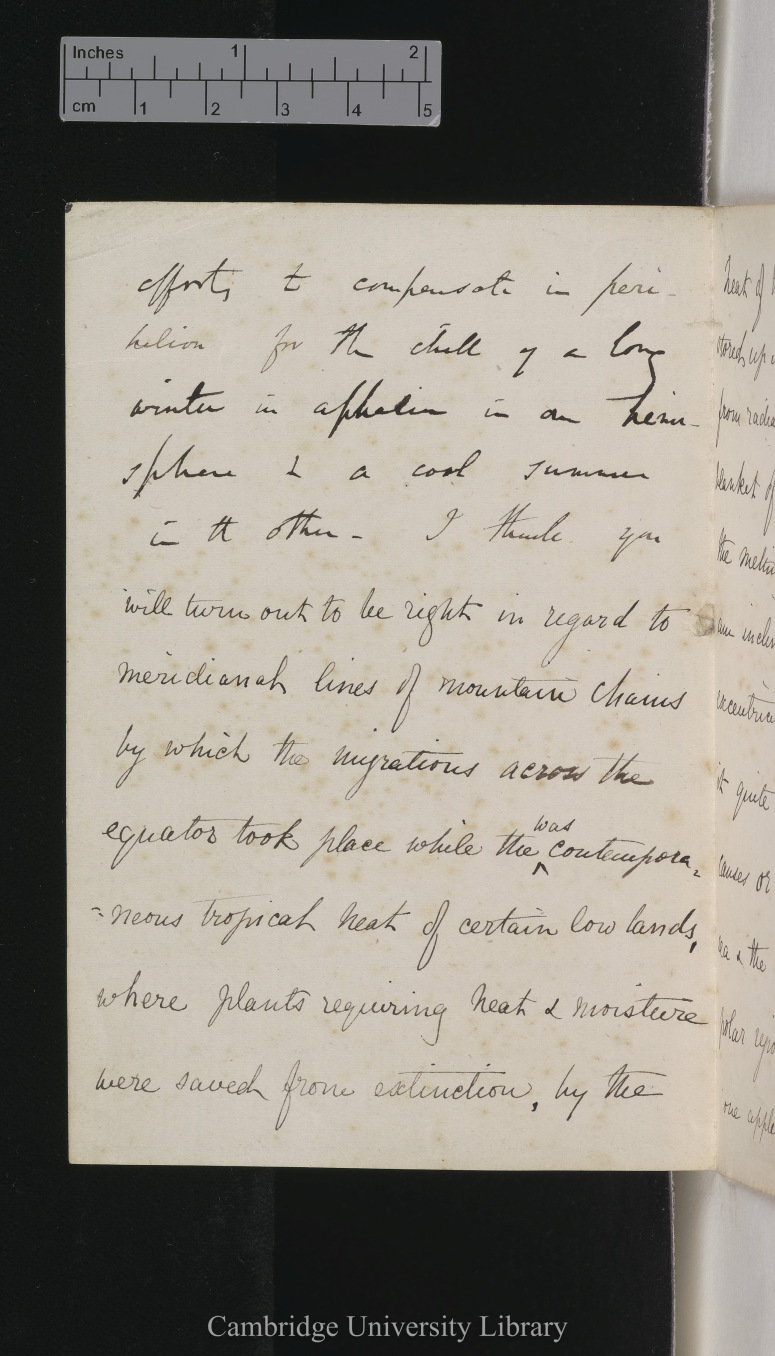 Inches 1 2
cm 1 2 3 4 5
efforts to compensate in peri-
helion for the chill of a long
winter in aphelion in one hemi-
sphere & a cool summer
in the other- I think you
will turn out to be right in regard to
meridianal lines of mountain chains
by which the migrations across the
equator took place while the
was
contempora=
=neous tropical heat of certain low lands,
where plants requiring heat & moisture
were saved from extinction, by the
heat of
stored up
from radia
blanket of
the
am inclin
excentric
it quite
causes or
& the
polar
one
Cambridge University Library